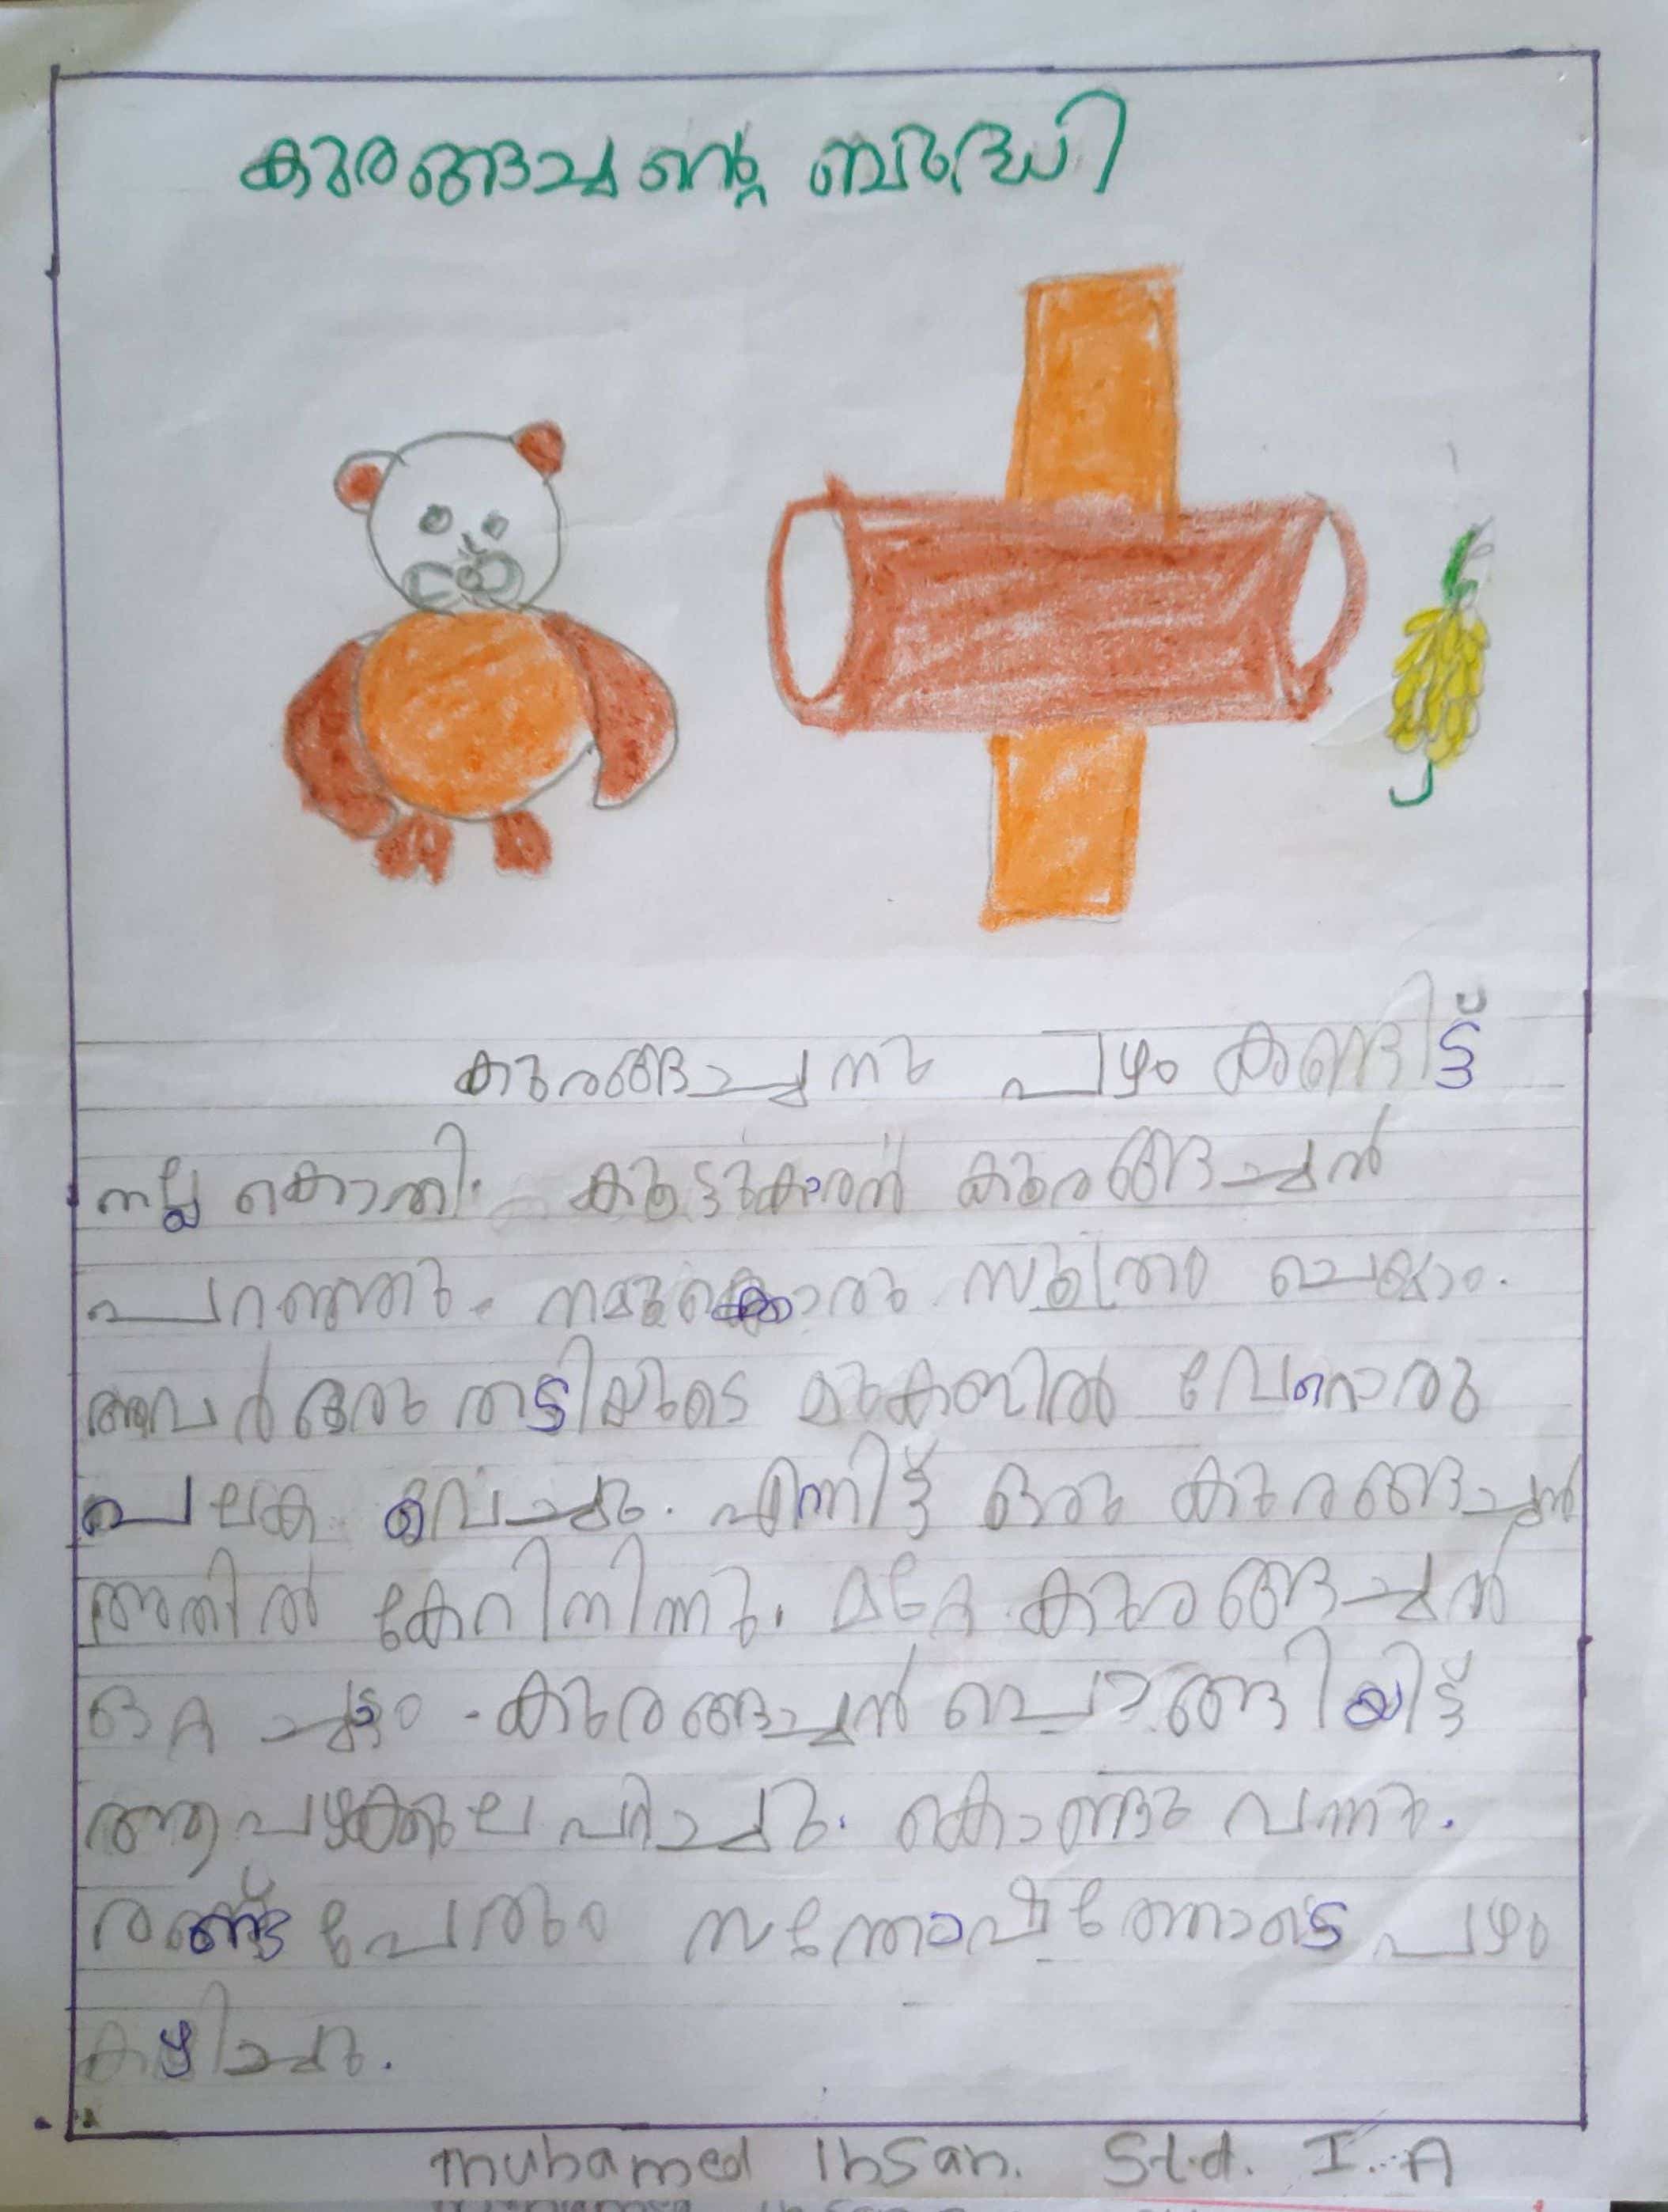 കുരങ്ങച്ചന്റെ ബുദ്ധി
കുരങ്ങച്ചനു പഴം കണ്ടിട്ട്
നല്ല കൊതി. കൂട്ടുകാരൻ കുരങ്ങച്ചൻ
പറഞ്ഞു. നമുക്കൊരു സൂത്രം ചെയ്യാം.
അവർ ഒരു തടിയുടെ മുകളിൽ വേറൊരു
പലക വെച്ചു. എന്നിട്ട് ഒരു കുരങ്ങച്ചൻ
അതിൽ കേറിനിന്നു. മറ്റേ കുരങ്ങച്ചൻ
ഒറ്റ ചാട്ടം. കുരങ്ങച്ചൻ പൊങ്ങിയിട്ട്
ആ പഴക്കുല പറിച്ചു. കൊണ്ടു വന്നു.
രണ്ട് പേരും സന്തോഷത്തോടെ പഴം
കഴിച്ചു.
muhamed Ihsan. Std. I. A